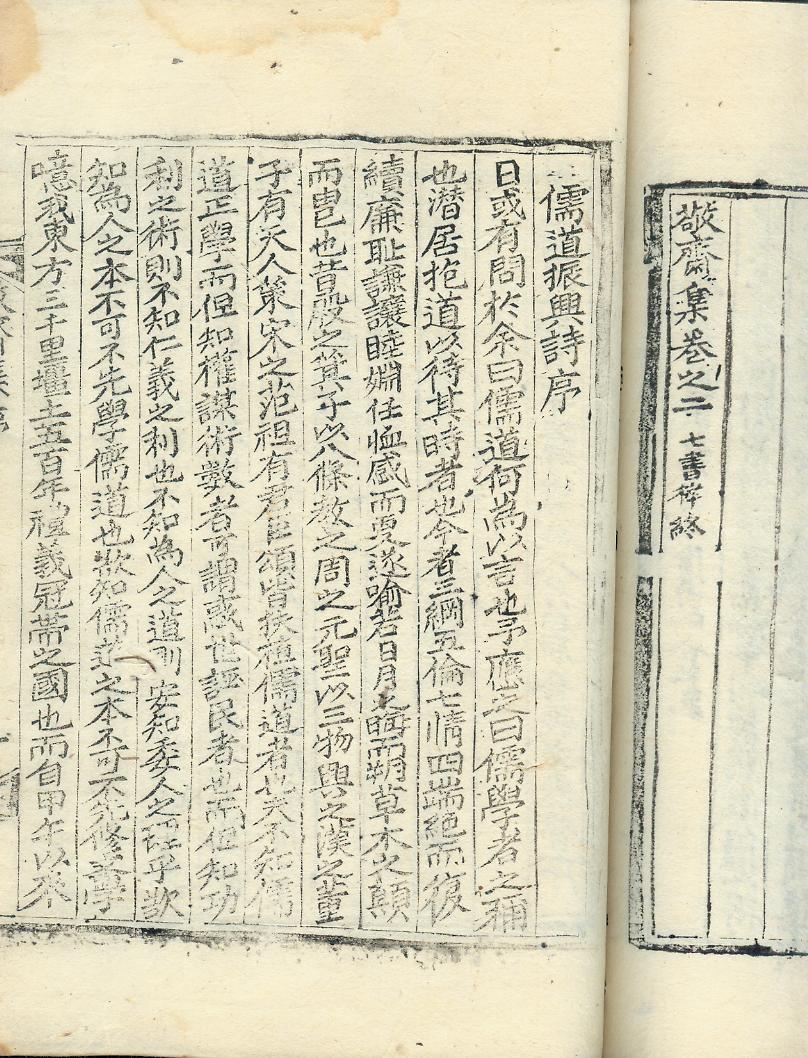 敬齋集卷之二 七書 終
儒道振興詩序
日或有問於余曰儒道何為以言也予應之曰儒學者之稱
也潛居抱道以待其時者也今者三綱五倫七情四端絕而復
續廉耻謙讓睦婣任恤感而遂喻若日月之晦而朔草木之顛
而也昔殷之箕子以八條敎之周之元聖以三物興之漢之董
子有天人策宋之范祖有君臣頌皆扶植儒道者也夫不知儒
道正學而但知權謀術數者可謂惑世誣民者也而但知功
利之術則不知仁義之利也不知為人之道則安知委人之理乎欲
知為人之本不可不先學儒道也欲知儒道之本不可不先修學
噫我東方三千里壃土五百年禮義冠帶之國也而自甲午以來